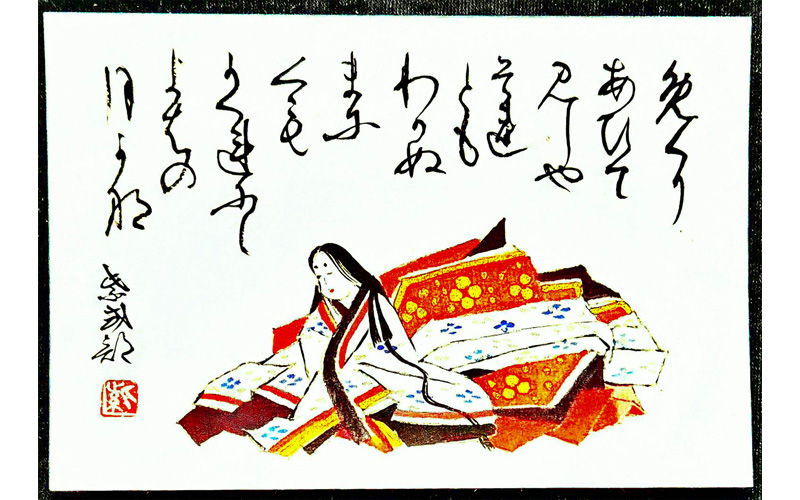 めくり
あひて
見しや
それ
とも
わかぬ
まに
くも
かくれにし
よはの
月かな
紫式部